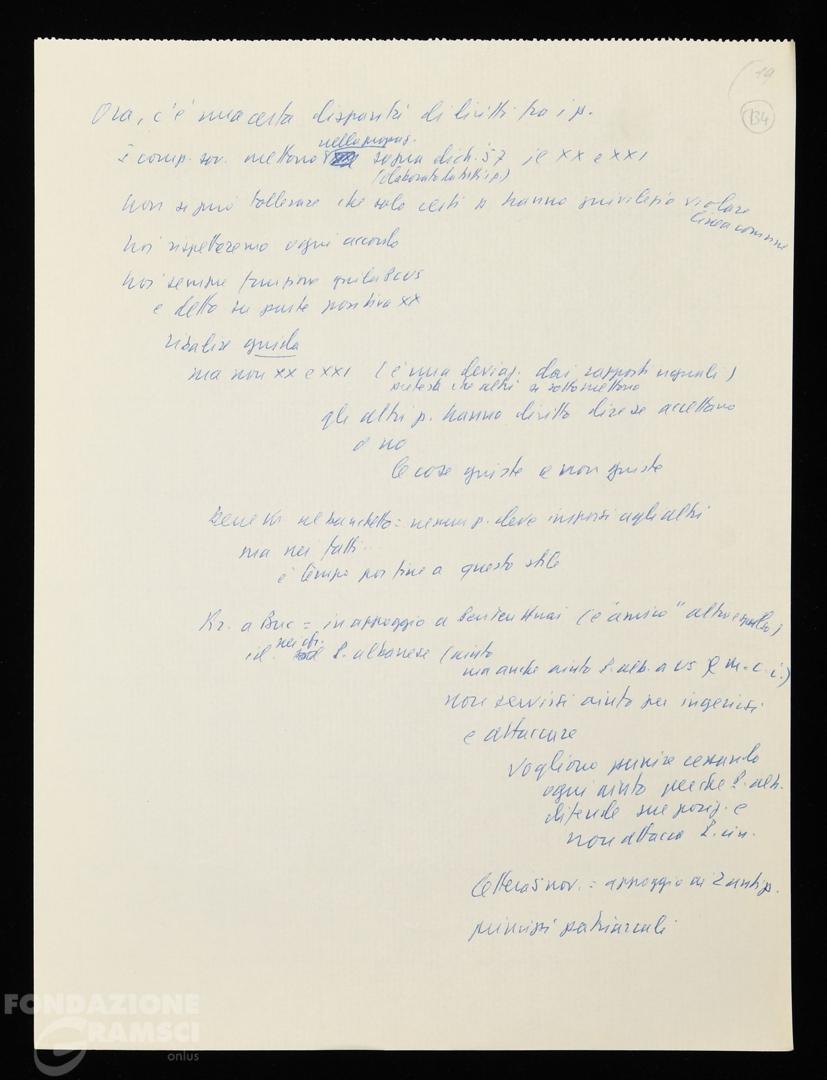 19
134
Ora, c'è una certa disparità di diritti tra i p.
nella propag.
I comp. sov. mettono sopra dich. 57 il XX e XXI
(elaborata da tutti i p)
Non si può tollerare che solo certi p hanno privilegio violare
linea comune
Noi rispetteremo ogni accordo
Noi sempre funzione guida PCUS
e detto su parte positiva XX
guida
ma non XX e XXI (è una deviaz. dai rapporti uguali)
pretesa che altri si sottomettano
gli altri p. hanno diritto dire se accettano
o no
le cose giuste e non giuste
Bene Kr nel banchetto = nessun p. deve imporsi agli altri
ma nei fatti...
è tempo por fine a questo stile
Kr. a Buc = in appoggio a Pen Ten Huai (è "amico" altro)
nei cfr.
id. P. albanese (aiuto
ma anche aiuto P. alb. a US e m.c.i.)
non servirsi aiuto per ingerirsi
e attaccare
Vogliono punire cessando
ogni aiuto perché P. alb.
difende sue posiz. e
non attacca P. cin.
Lettera 5 nov. = appoggio ai 2 antip.
principi patriarcali
FONDAZIONE
GRAMSCI
onlus